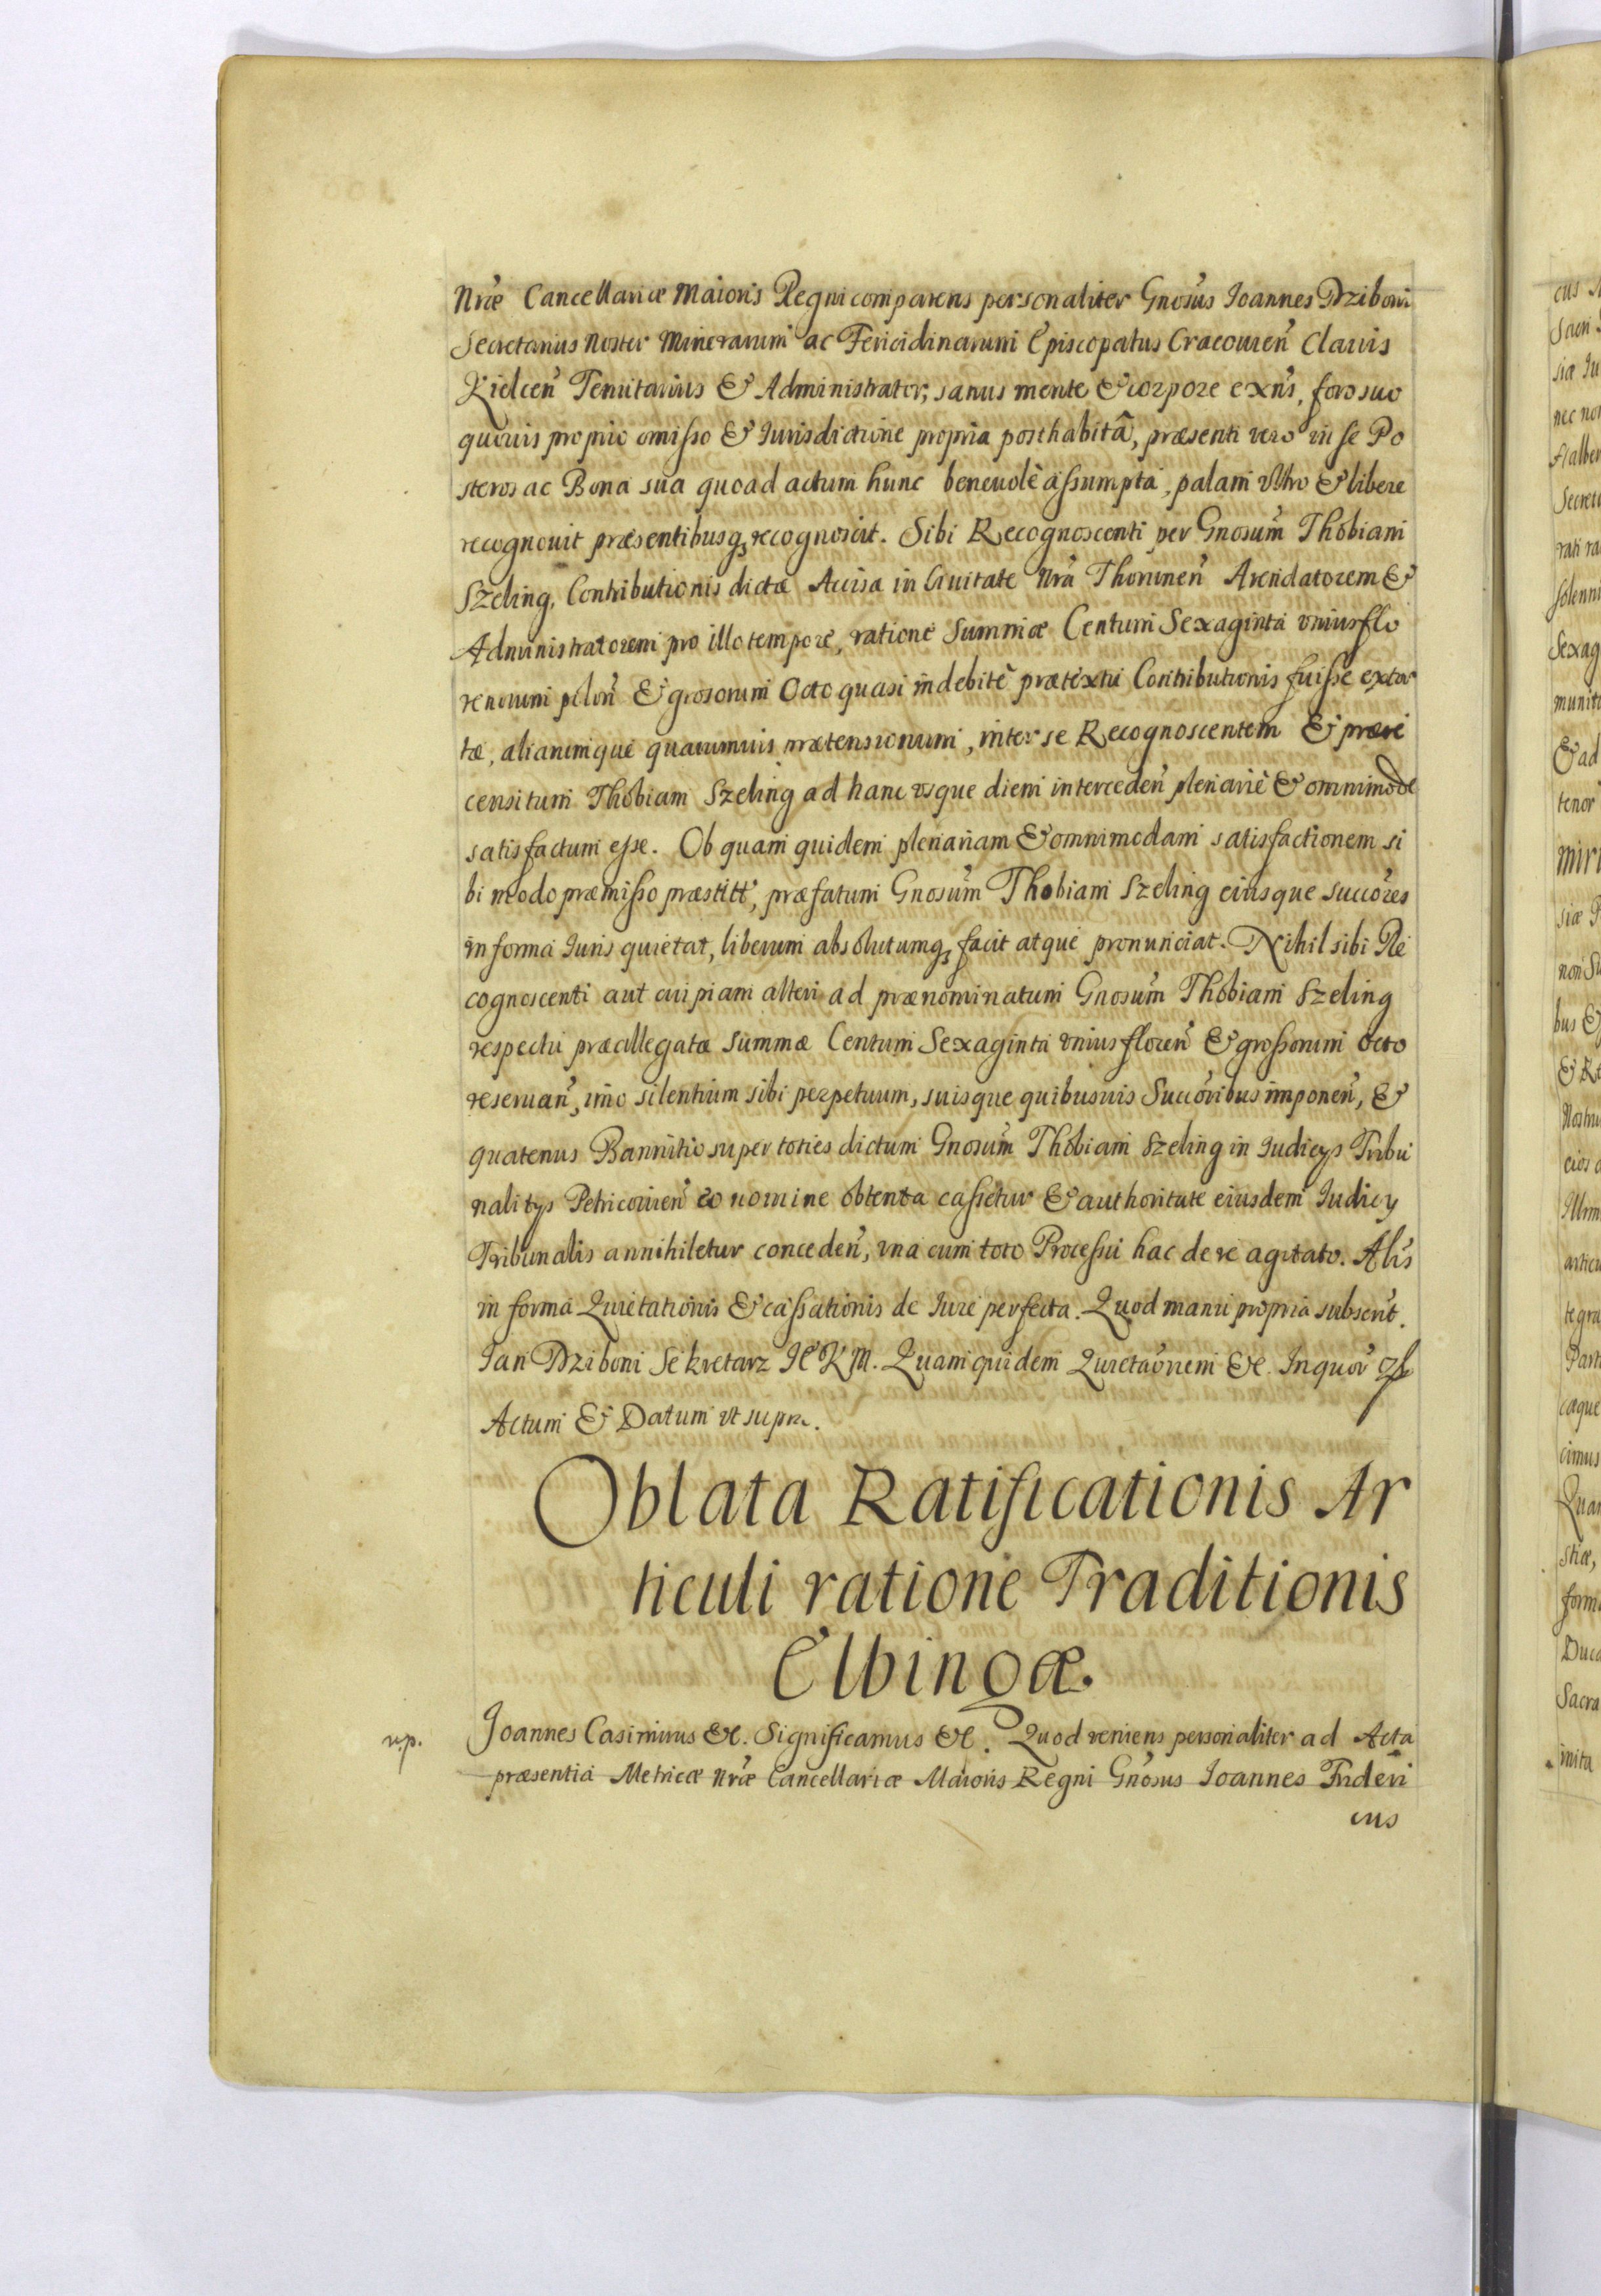 Nræ Cancellariæ Maioris Regni comparens personaliter Gnosus Ioannes Dziboni
Secretarius Noster Minerarum ac Fericidinarum Episcopatus Cracouien Clauis
Kielcen Tenutarius & Administrator, sanus mente & corpore exns, foro suo
quouis proprio omisso & Iurisdictione propria posthabitâ, præsenti vero in se Po
steros ac Bona sua quoad actum hunc beneuolè assumpta, palam vltro & libere
recognouit præsentibusq recognoscit. Sibi Recognoscenti per Gnosum Thobiam
Szeling, Contributionis dictæ Accisa in Ciuitate Nra Thorunen Arendatorem &
Administratorem pro illo tempore, ratione Summæ Centum Sexaginta vnius flo
renorum polon & grosorum Octo quasi indebitè prætextu Contributionis fuisse extor
tæ, aliarumque quarumuis prætensionum, inter se Recognoscentem & prære
censitum Thobiam Szeling ad hanc vsque diem interceden plenariè & omnimode
satisfactum esse. Ob quam quidem plenariam & omnimodam satisfactionem si
bi modo præmisso præstitt, præfatum Gnosum Thobiam Szeling eiusque succores
in forma Iuris quietat, liberum absolutumq facit atque pronunciat. Nihil sibi Re
cognoscenti aut cuipiam alteri ad prænominatum Gnosum Thobiam Szeling
respectu præallegatæ summæ Centum Sexaginta vnius floren & grossorum octo
reseruan, imo silentium sibi perpetuum, suisque quibusuis Succoribus imponen, &
quatenus Bannitio super toties dictum Gnosum Thobiam Szeling in Iudicys Tribu
nalitys Petricouien eo nomine obtenta cassetur & authoritate eiusdem Iudicy
Tribunalis annihiletur conceden, vna cum toto Processu hac de re agitato. Alis
in forma Quietationis & cassationis de Iure perfecta. Quod manu propria subscrit.
Ian Dziboni Sekretarz IE K M. Quam quidem Quietaonem &c. In quor
Actum & Datum vt supra.
Oblata Ratificationis Ar
ticuli ratione Traditionis
Elbingæ.
Ioannes Casimirus &c. Significamus &c. Quod veniens personaliter ad Acta
præsentia Metricæ Nræ Cancellariæ Maioris Regni Gnosus Ioannes Frideri
cus